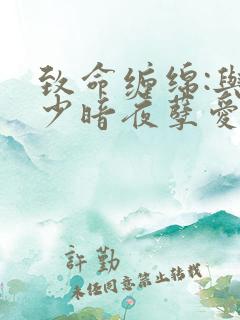 致命缠绵:與
少暗夜孽爱
許勤
未经同意禁止转载